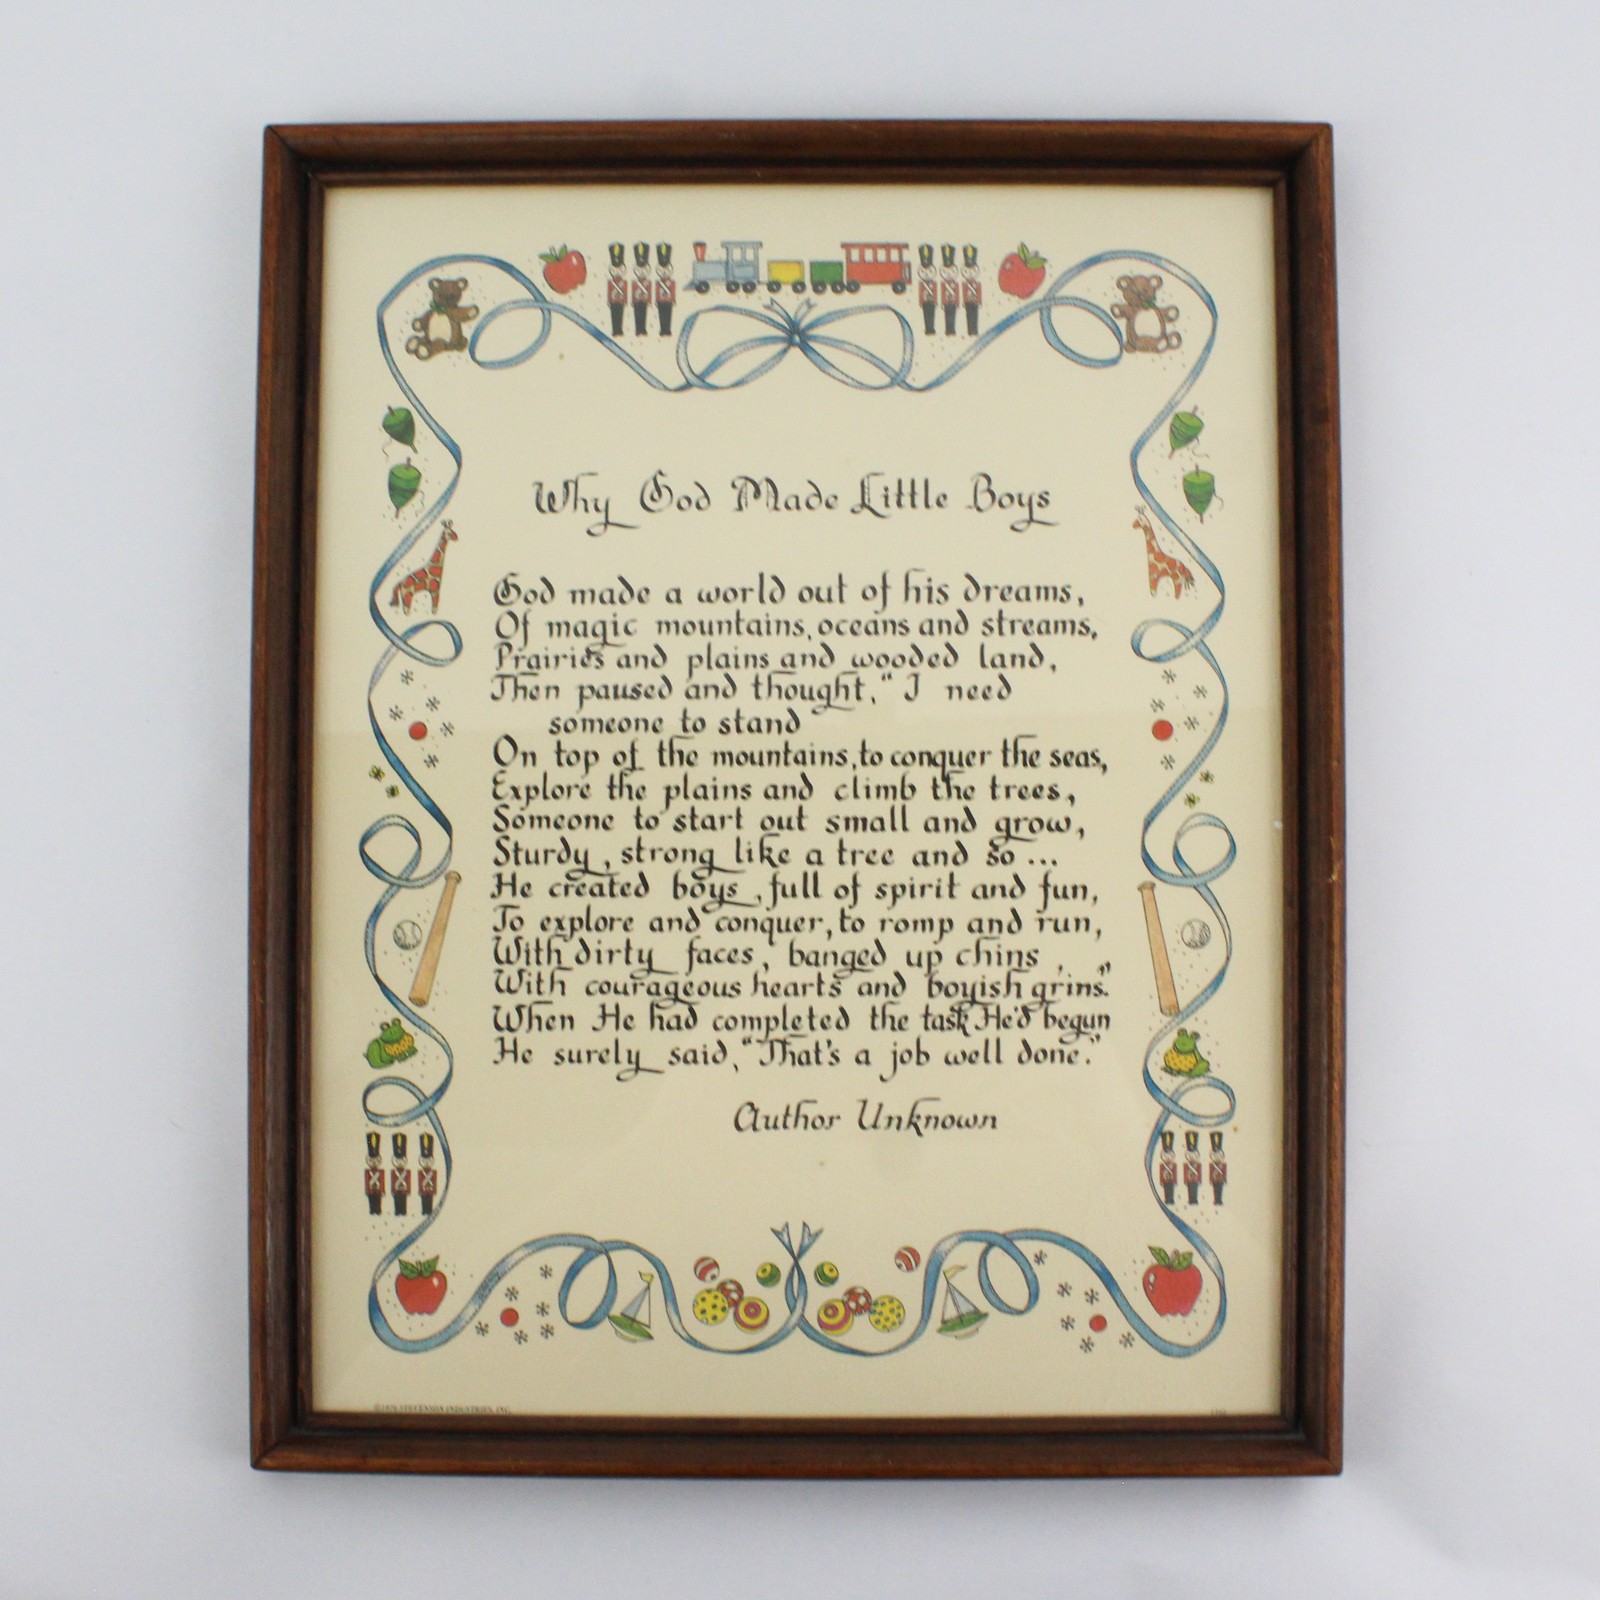 Why God Made Little Boys
God made a world out of his dreams,
Of magic mountains, oceans and streams,
Prairies and plains and wooded land,
Then paused and thought, "I need
someone to stand
On top of the mountains, to conquer the seas,
Explore the plains and climb the trees,
Someone to start out small and grow,
Sturdy, strong like a tree and so ...
He created boys, full of spirit and fun,
To explore and conquer, to romp and run,
With dirty faces, banged up chins,
With courageous hearts and boyish grins."
When He had completed the task He'd begun
He surely said, "That's a job well done."
Author Unknown
INDUSTRIES, INC.